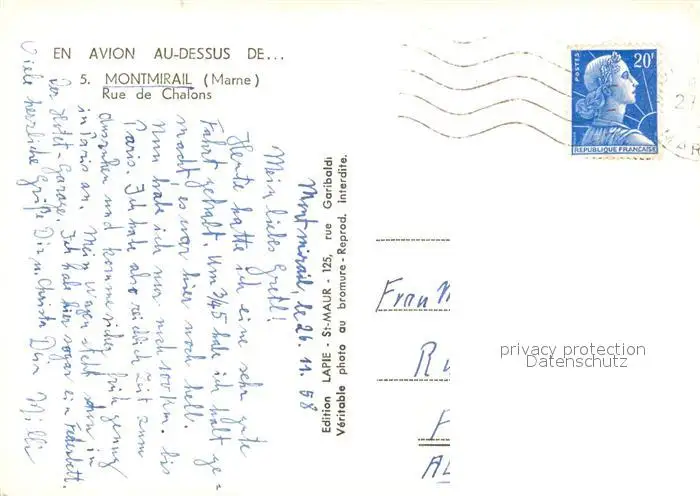 EN AVION AU-DESSUS DE...
5. MONTMIRAIL (Marne)
Rue de Chalons
Montmirail, le 26. 11. 58
Mein liebes Gretl!
Heute hatte ich eine sehr gute
Fahrt gehabt. Um 3/4 5 habe ich halt ge=
macht, es war hier noch hell.
Nun habe ich nur noch 100 km. bis
Paris. Ich habe also reichlich Zeit zum
Ausruhen und komme sicher früh genug
in Paris an. Mein Wagen steht schon in
der Garage. Ich habe hier sogar ein Federbett.
Viele herzliche Grüße Dir u. Christa Dein Willi
Edition LAPIE - St-MAUR - 125, rue Garibaldi
Véritable photo au bromure - Reprod. Interdite.
POSTES
20F
REPUBLIQUE FRANÇAISE
Frau
privacy protection
Datenschutz